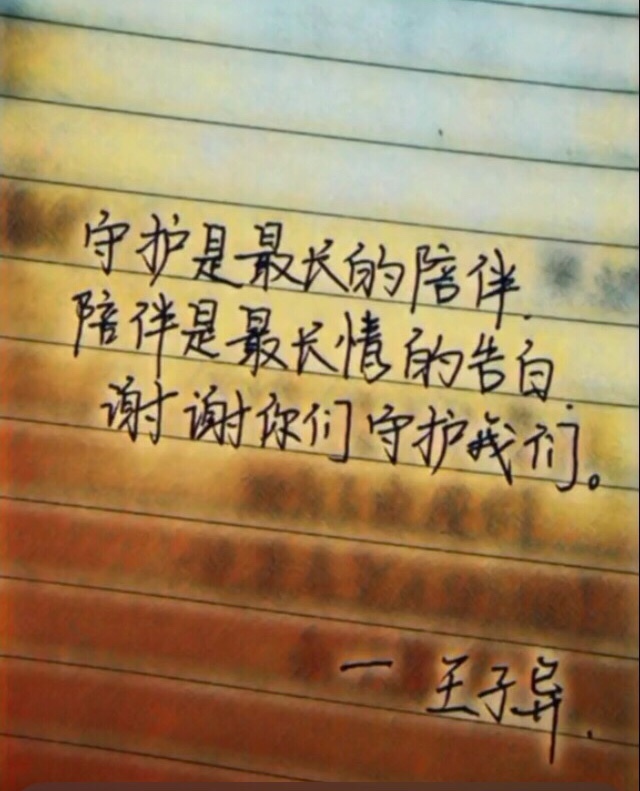 守护是最长的陪伴.
陪伴是最长情的告白.
谢谢你们守护我们。
一 王子异.